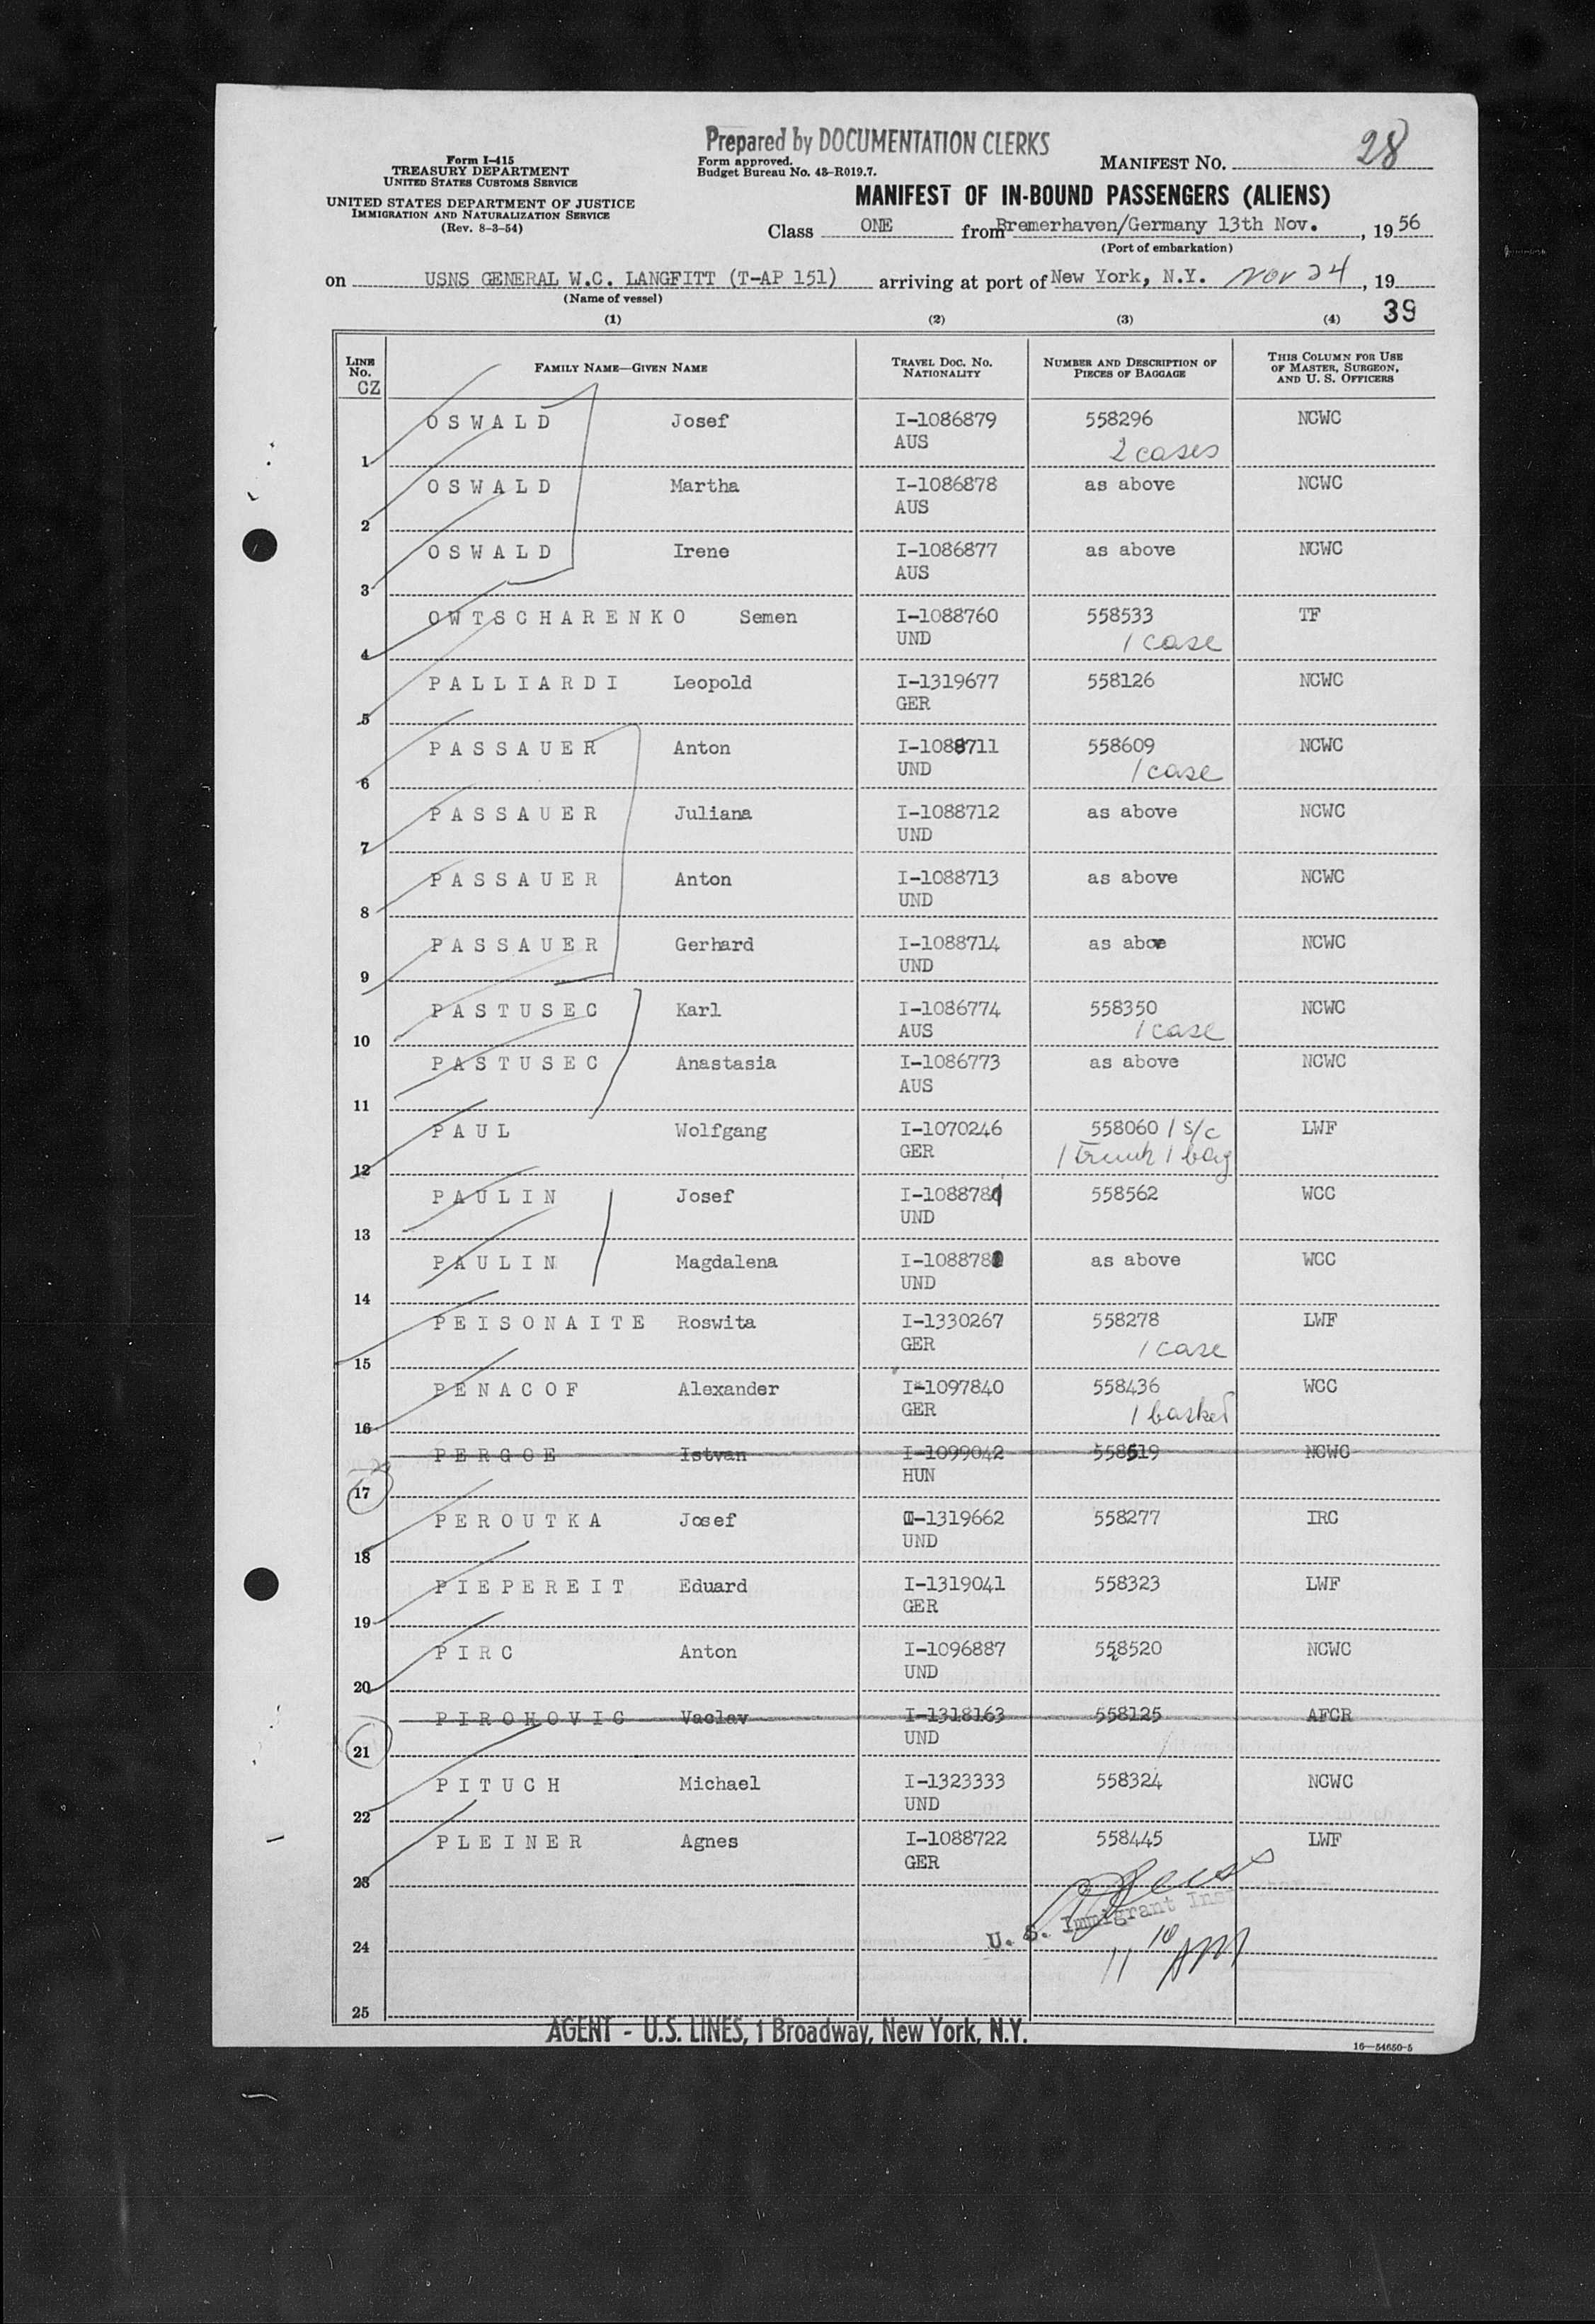 Prepared by DOCUMENTATION CLERKS
28
Form I-415
TREASURY DEPARTMENT
UNITED STATES CUSTOMS SERVICE
UNITED STATES DEPARTMENT OF JUSTICE
IMMIGRATION AND NATURALIZATION SERVICE
(Rev. 8-3-54)
Form approved.
Budget Bureau No. 43-R019.7.
MANIFEST NO.
MANIFEST OF IN-BOUND PASSENGERS (ALIENS)
Class ONE from Bremerhaven/Germany 13th Nov. , 1956
(Port of embarkation)
on USNS GENERAL W.C. LANGFITT (T-AP 151) arriving at port of New York, N.Y. Nov 24 , 19
(Name of vessel)
(1) (2) (3) (4) 39
LINE No. CZ FAMILY NAME—GIVEN NAME TRAVEL DOC. NO. NATIONALITY NUMBER AND DESCRIPTION OF PIECES OF BAGGAGE THIS COLUMN FOR USE OF MASTER, SURGEON, AND U. S. OFFICERS
OSWALD Josef I-1086879 558296 NCWC
AUS 2 cases
1
OSWALD Martha I-1086878 as above NCWC
AUS
2
OSWALD Irene I-1086877 as above NCWC
AUS
3
OWTSCHARENKO Semen I-1088760 558533 TF
UND 1 case
4
PALLIARDI Leopold I-1319677 558126 NCWC
GER
5
PASSAUER Anton I-1088711 558609 NCWC
UND 1 case
6
PASSAUER Juliana I-1088712 as above NCWC
UND
7
PASSAUER Anton I-1088713 as above NCWC
UND
8
PASSAUER Gerhard I-1088714 as above NCWC
UND
9
PASTUSEC Karl I-1086774 558350 NCWC
AUS 1 case
10
PASTUSEC Anastasia I-1086773 as above NCWC
AUS
11
PAUL Wolfgang I-1070246 558060 1 s/c LWF
GER 1 trunk 1 bag
12
PAULIN Josef 558562 WCC
UND
13
PAULIN Magdalena as above WCC
UND
14
PEISONAITE Roswita I-1330267 558278 LWF
GER 1 case
15
PENACOF Alexander I-1097840 558436 WCC
GER 1 basket
16
PERGOE Istvan I-1099042 558519 NCWC
HUN
17
PEROUTKA Josef I-1319662 558277 IRC
UND
18
PIEPEREIT Eduard I-1319041 558323 LWF
GER
19
PIRC Anton I-1096887 558520 NCWC
UND
20
PIROHOVIC Vaclav I-1318163 558125 AFCR
UND
21
PITUCH Michael I-1323333 558324 NCWC
UND
22
PLEINER Agnes I-1088722 558445 LWF
GER
23
U. S. Immigrant Ins
24
11 10 AM
25
AGENT - U.S. LINES, 1 Broadway, New York, N.Y.
16—54650-5